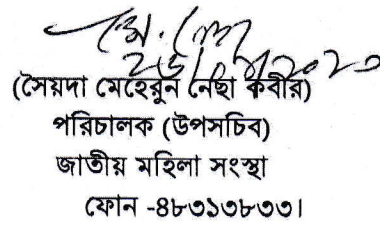 (সৈয়দা মেহেরুন নেছা কবীর)
পরিচালক (উপসচিব)
জাতীয় মহিলা সংস্থা
ফোন -৪৮৩১৩৮৩৩।